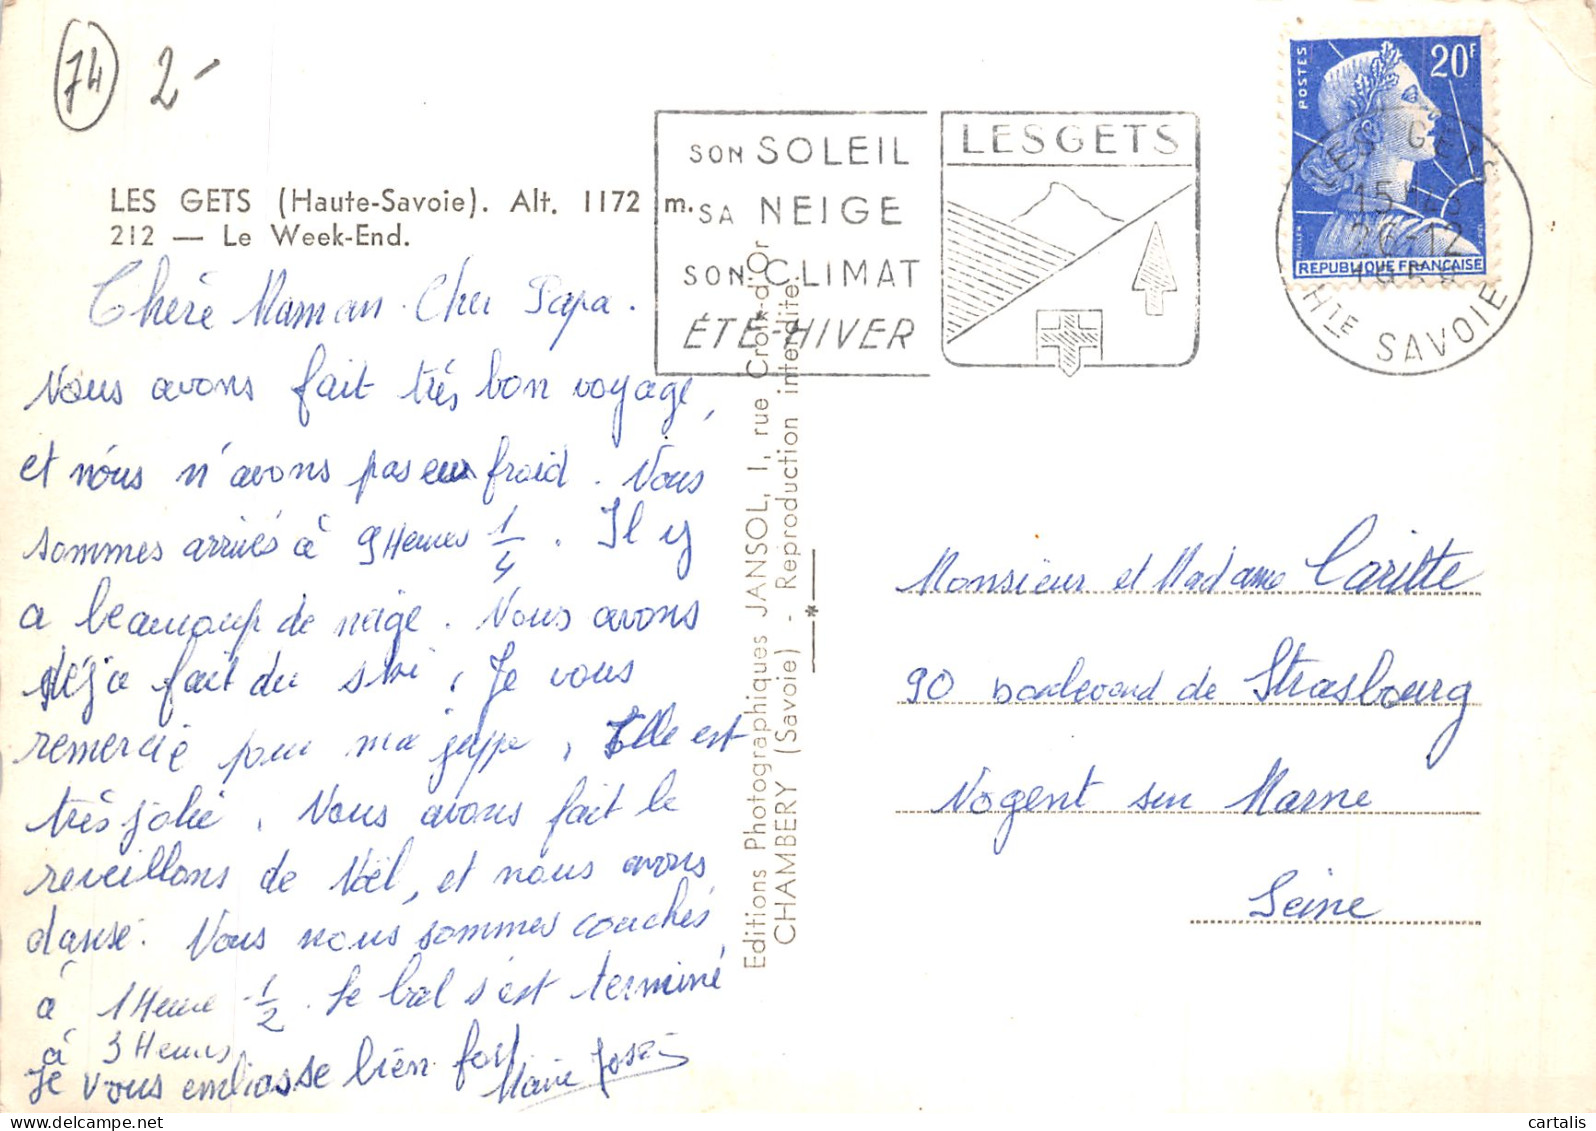 74 2-
LES GETS (Haute-Savoie). Alt. 1172 m.
212 — Le Week-End.
Chère Maman. Cher Papa.
Nous avons fait très bon voyage,
et nous n'avons pas eu froid. Nous
sommes arrivés à 9 Heures 1/4. Il y
a beaucoup de neige. Nous avons
déja fait du ski. Je vous
remercie pour ma juppe. Elle est
très jolie. Nous avons fait le
reveillons de Noël, et nous avons
danse. Nous nous sommes couchés
à 1 Heure 1/2. Le bal s'est terminé
à 3 Heures
Je vous embrasse bien fort
Marie José
Editions Photographiques JANSOL, 1, rue Croix-d'Or
CHAMBERY (Savoie) - Reproduction interdite.
SON SOLEIL
SA NEIGE
SON CLIMAT
ÉTÉ-HIVER
LES GETS
POSTES
20F
MULLER
REPUBLIQUE FRANÇAISE
LES GETS
15H
26-12
HTE SAVOIE
Monsieur et Madame Caritte
90 boulevard de Strasbourg
Nogent sur Marne
Seine
delcampe.net
cartalis